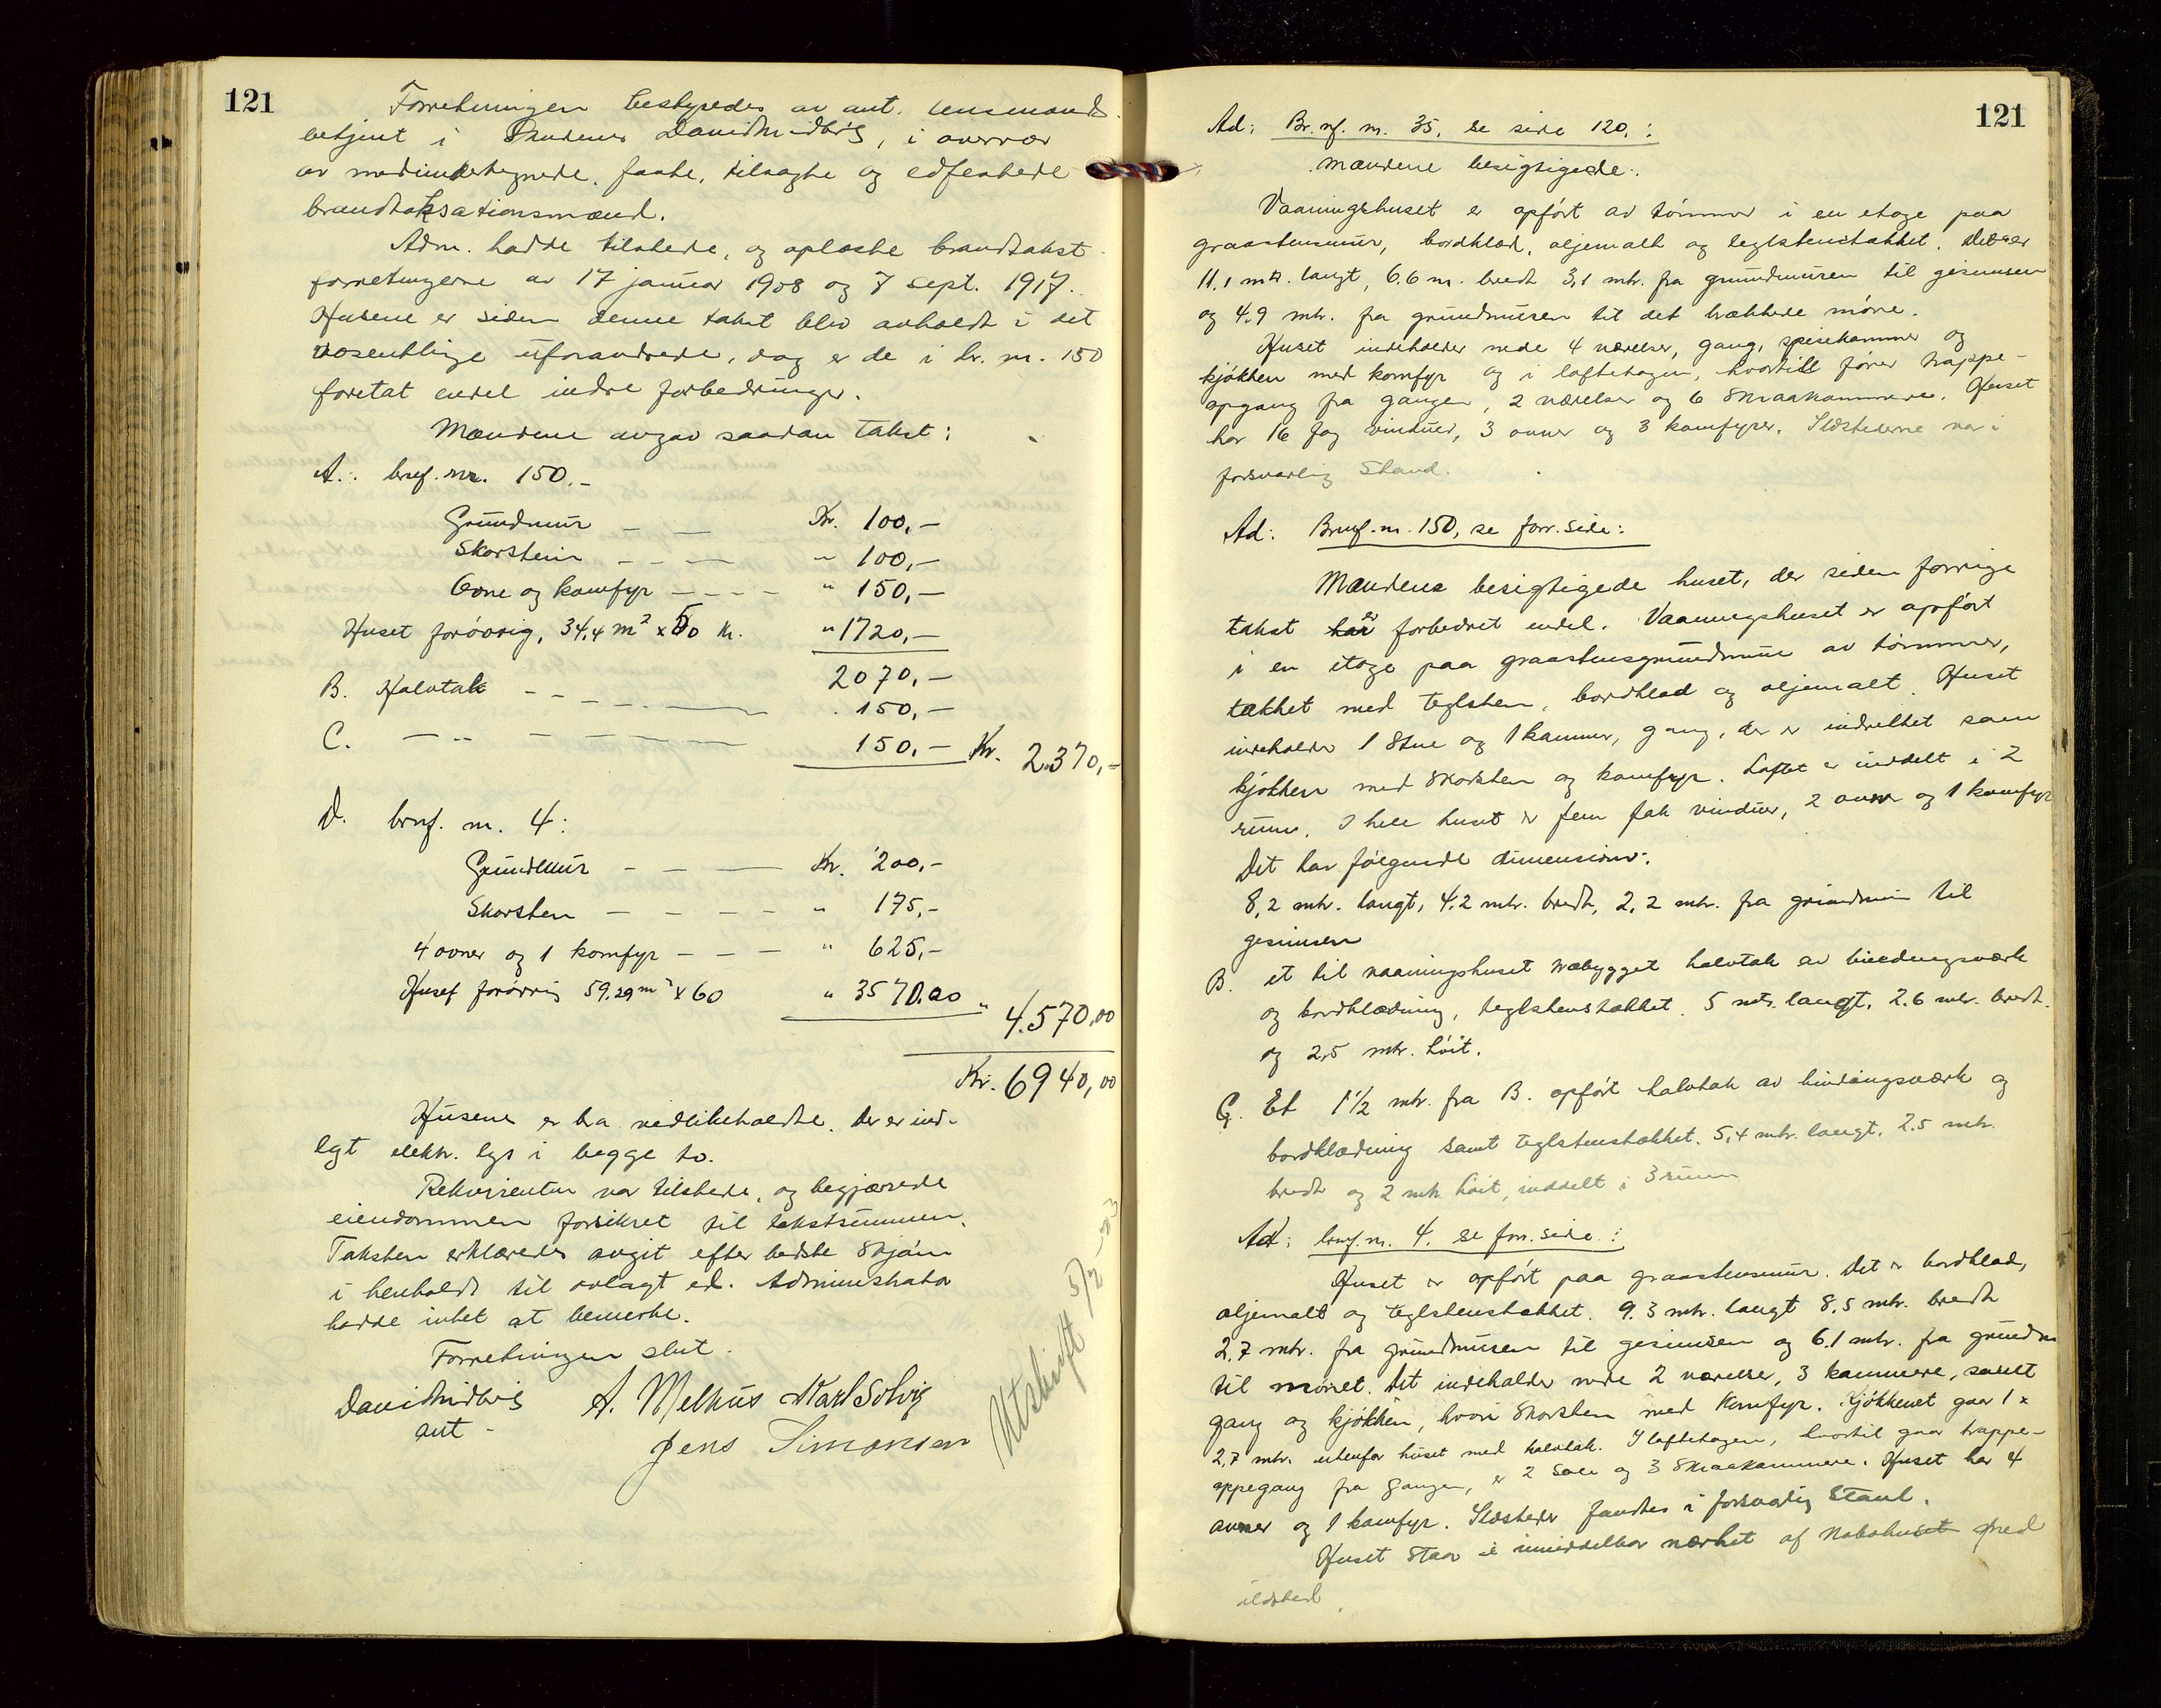 121
Forretningen bestyredes av aut. lensmands
betjent i Skudenes David Midbøs, i overvær
av medundertegnede, faste, tilsagte og edfæstede
brandtaksationsmænd.
Adm. hadde tilstede, og oplæste brandtakst
forretningerne av 17 januar 1908 og 7 sept. 1917.
Husene er siden denne takst blev avholdt i det
væsentlige uforandrede, dog er de i br. nr. 150
foretat endel indre forbedringer.
Mændene avgav saadan takst:
A.: brnf. nr. 150.-
Grundmur - - Kr. 100,-
Skorstein - - - " 100,-
Ovne og komfyr - - - - " 150,-
Huset forøvrig, 34,4 m² x 50 kr. " 1720,-
2070,-
B. Halvtak - - - - - 150,-
C. - " - - - - 150,- Kr. 2.370,-
D. brnf. nr. 4:
Grundmur - - - Kr. 200,-
Skorsten - - - - " 175,-
4 ovner og 1 komfyr - - - " 625,-
Huset forøvrig 59,29 m² x 60 " 3570.00 " 4.570,00
Kr. 6940,00
Husene er bra vedlikeholdte. Der er ind-
lgt elektr. lys i begge to.
Rekvirenten var tilstede, og begjærede
eiendommen forsikret til takstsummen.
Taksten erklæredes avgit efter bedste skjøn
i henhold til avlagt ed. Administrator
hadde intet at bemerke.
Forretningen slut.
David Midbøs A. Melhus Karl Solvig
aut - Jens Simonsen
Utskrift 5/2 - 23
121
Ad: Br. nf. nr. 35, se side 120.:
Mændene besigtigede:
Vaaningshuset er opført av tømmer i en etage paa
graastensmur, bordklæd, oljemalt og teglstenstækket. Det er
11,1 mtr. langt, 6,6 m. bredt 3,1 mtr. fra grundmuren til gesimsen
og 4,9 mtr. fra grundmuren til det brækkede møne.
Huset indeholder nede 4 værelser, gang, spisekammer og
kjøkken med komfyr og i loftetagen, hvortill fører trappe-
opgang fra gangen, 2 værelser og 6 skraakammere. Huset
har 16 fag vinduer, 3 ovner og 3 komfyrer. Ildstederne var i
forsvarlig stand.
Ad: Brnf. nr. 150, se forr. side:
Mændene besigtigede huset, der siden forrige
takst er forbedret endel. Vaaningshuset er opført
i en etage paa graastensgrundmur av tømmer,
tækket med teglsten, bordklæd og oljemalt. Huset
indeholder 1 stue og 1 kammer, gang, der er indrettet som
kjøkken med skorsten og komfyr. Loftet er inddelt i 2
rum. I hele huset er fem fak vinduer, 2 ovner og 1 komfyr
Det har følgende dimensioner:
8,2 mtr. langt, 4,2 mtr. bredt, 2,2 mtr. fra grundmur til
gesimsen
B. et til vaaningshuset vedbygget halvtak av bindingsværk
og bordklædning, teglstenstækket. 5 mtr. langt, 2.6 mtr. bredt
og 2,5 mtr. høit.
C. Et 1½ mtr. fra B. opført halvtak av bindingsværk og
bordklædning samt teglstenstækket. 5,4 mtr. langt, 2.5 mtr.
bredt og 2 mtr. høit, inddelt i 3 rum
Ad: brnf. nr. 4. se forr. side:
Huset er opført paa graastensmur. Det er bordklæd,
oljemalt og teglstenstækket. 9.3 mtr. langt 8,5 mtr. bredt
2,7 mtr. fra grundmuren til gesimsen og 6,1 mtr. fra grundm
til mønet. Det indeholder nede 2 værelser, 3 kammere, samt
gang og kjøkken, hvori skorsten med komfyr. Kjøkkenet gaar 1 x
2,7 mtr. utenfor huset med halvtak. I loftetagen, hvortil gaar trappe-
oppegang fra gangen, er 2 sale og 3 skraakammere. Huset har 4
ovner og 1 komfyr. Ildsteder fandtes i forsvarlig stand.
Huset staar i umiddelbar nærhet af nabohuset med
ildsted.